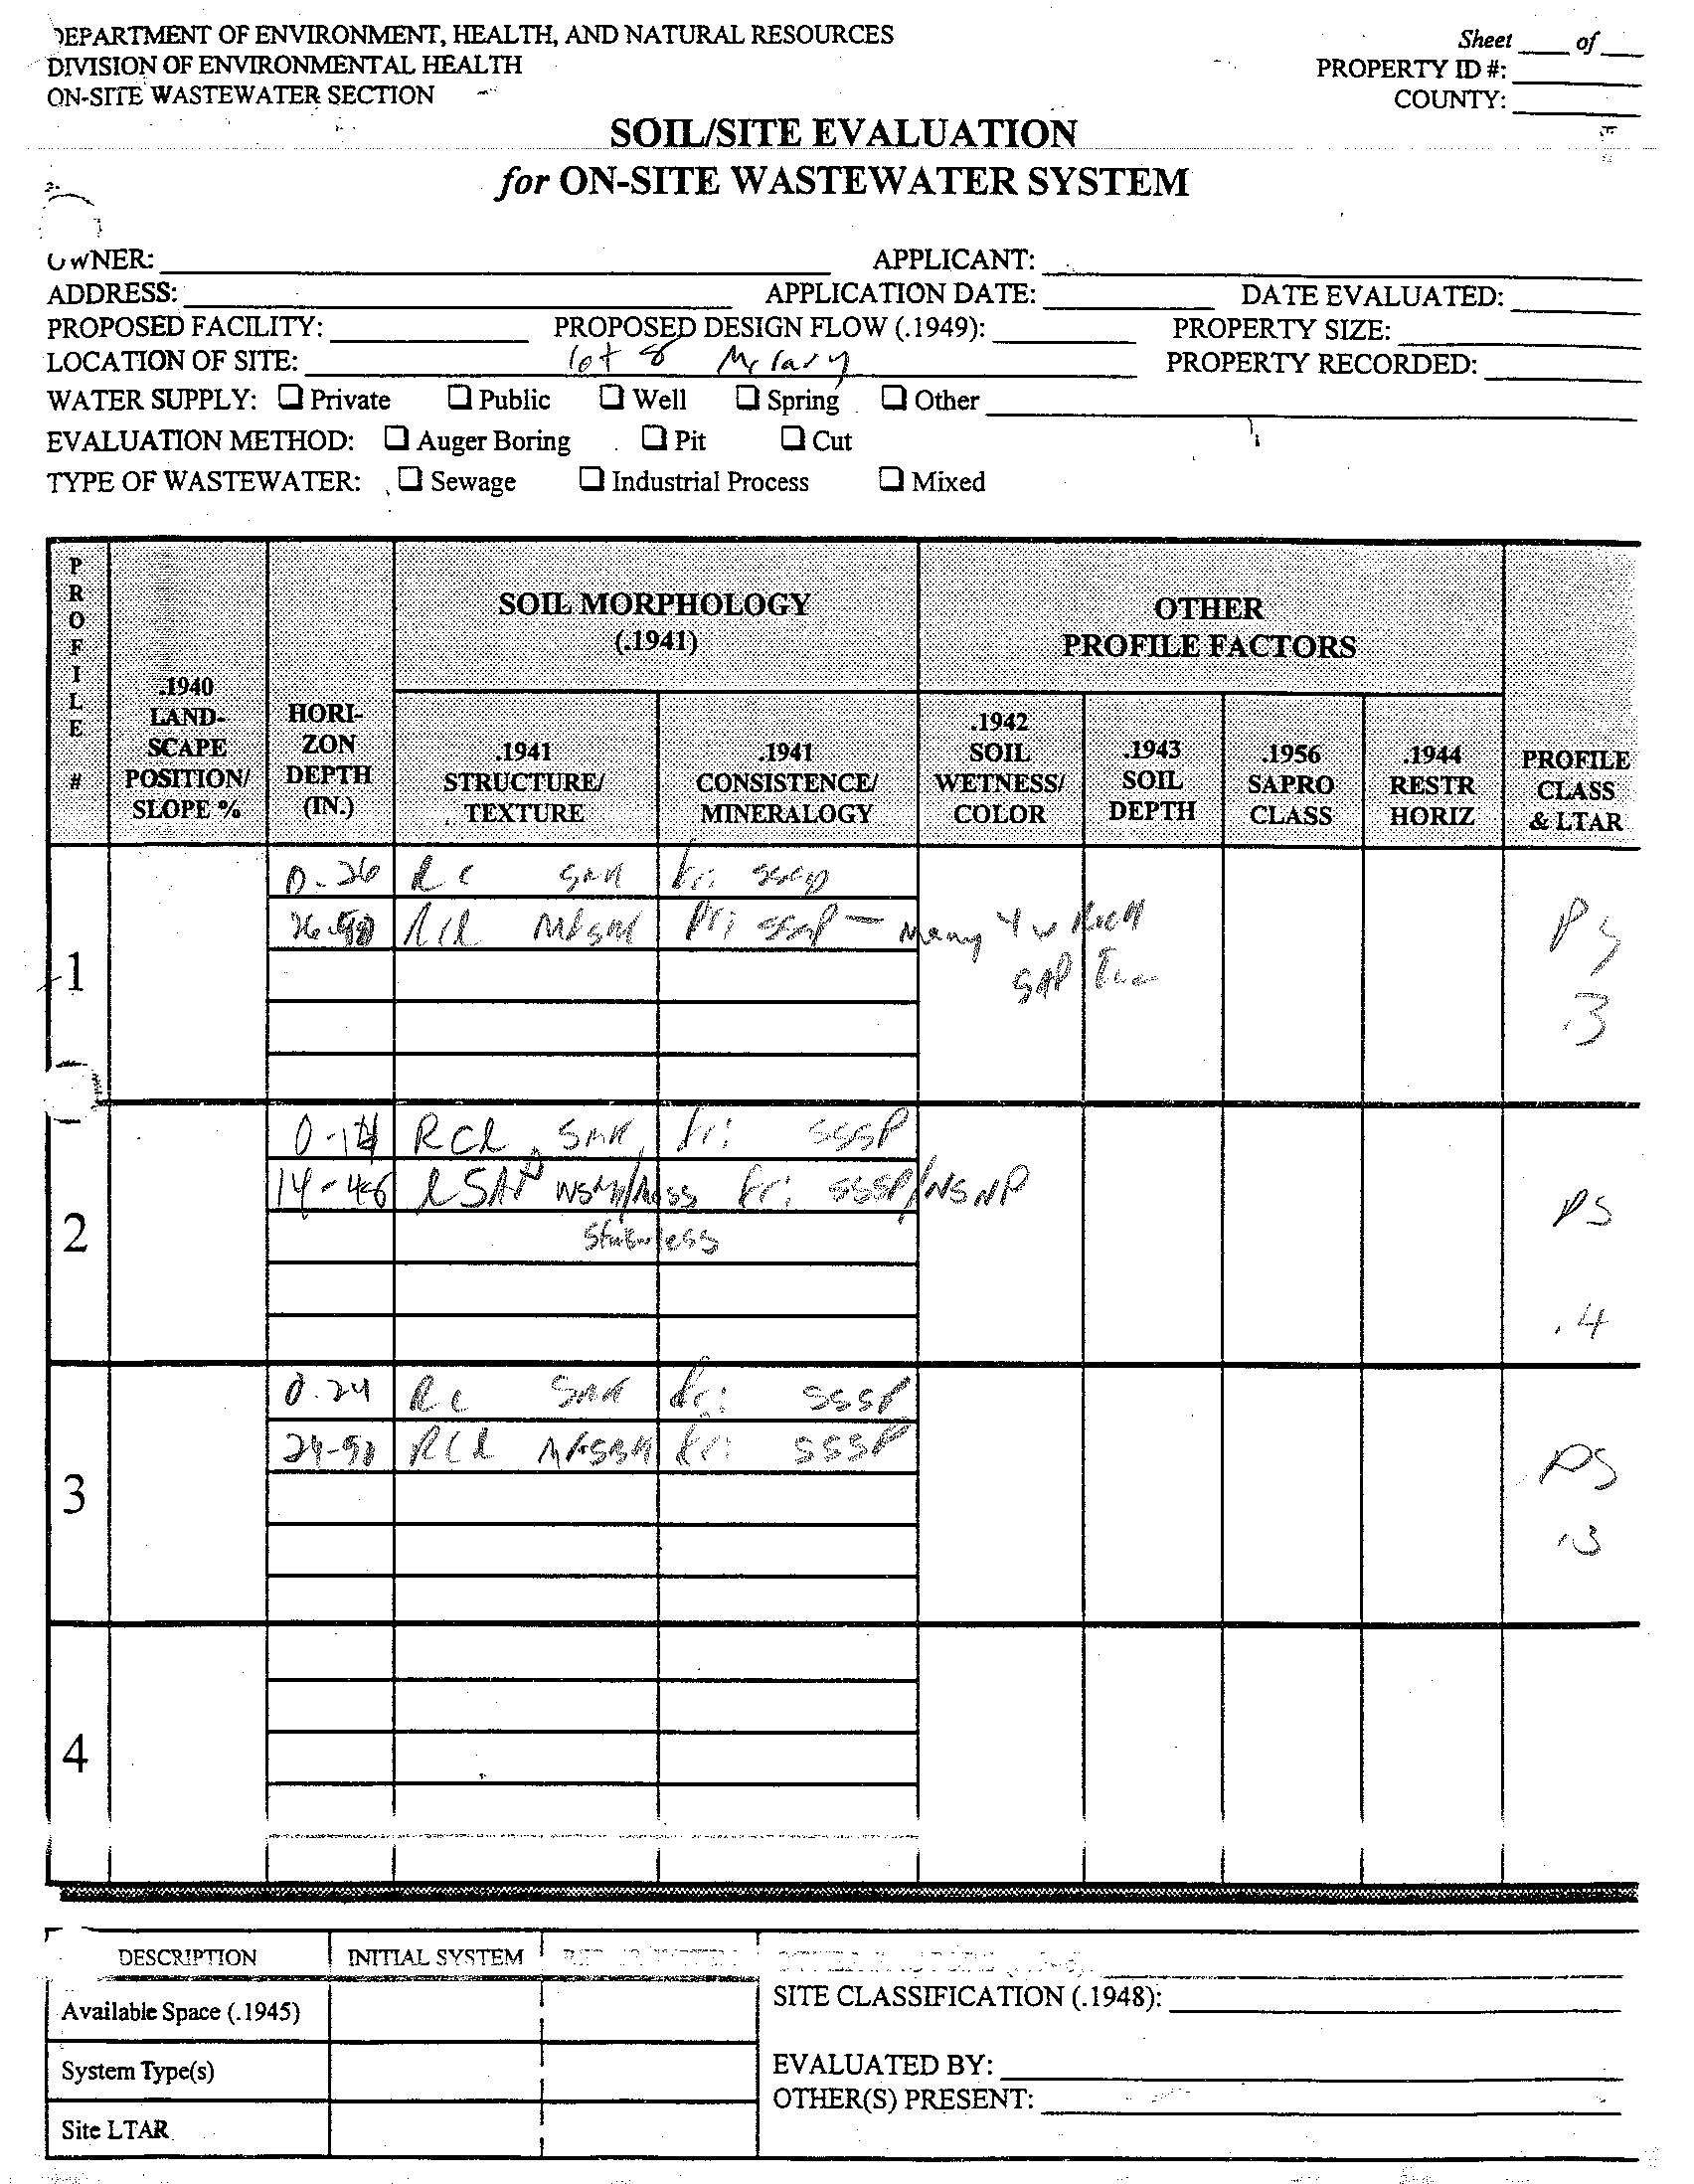 DEPARTMENT OF ENVIRONMENT, HEALTH, AND NATURAL RESOURCES
DIVISION OF ENVIRONMENTAL HEALTH
ON-SITE WASTEWATER SECTION
Sheet ____ of ____
PROPERTY ID #:
COUNTY:
SOIL/SITE EVALUATION
for ON-SITE WASTEWATER SYSTEM
OWNER: APPLICANT:
ADDRESS: APPLICATION DATE: DATE EVALUATED:
PROPOSED FACILITY: PROPOSED DESIGN FLOW (.1949): PROPERTY SIZE:
LOCATION OF SITE: lot 8 PROPERTY RECORDED:
WATER SUPPLY: ☐ Private ☐ Public ☐ Well ☐ Spring ☐ Other
EVALUATION METHOD: ☐ Auger Boring ☐ Pit ☐ Cut
TYPE OF WASTEWATER: ☐ Sewage ☐ Industrial Process ☐ Mixed
PROFILE #
.1940 LAND-SCAPE POSITION/ SLOPE %
HORI-ZON DEPTH (IN.)
SOIL MORPHOLOGY
(.1941)
.1941 STRUCTURE/ TEXTURE
.1941 CONSISTENCE/ MINERALOGY
OTHER
PROFILE FACTORS
.1942 SOIL WETNESS/ COLOR
.1943 SOIL DEPTH
.1956 SAPRO CLASS
.1944 RESTR HORIZ
PROFILE CLASS & LTAR
1
0-26 RC fri sssp
fri sssp - Many
SAP
PS
.3
2
RCL fri sssp
14-46 fri sssp/NSNP
PS
.4
3
0-24 RC fri sssp
RCL fri sssp
PS
.3
4
DESCRIPTION INITIAL SYSTEM
SITE CLASSIFICATION (.1948):
Available Space (.1945)
System Type(s)
EVALUATED BY:
OTHER(S) PRESENT:
Site LTAR